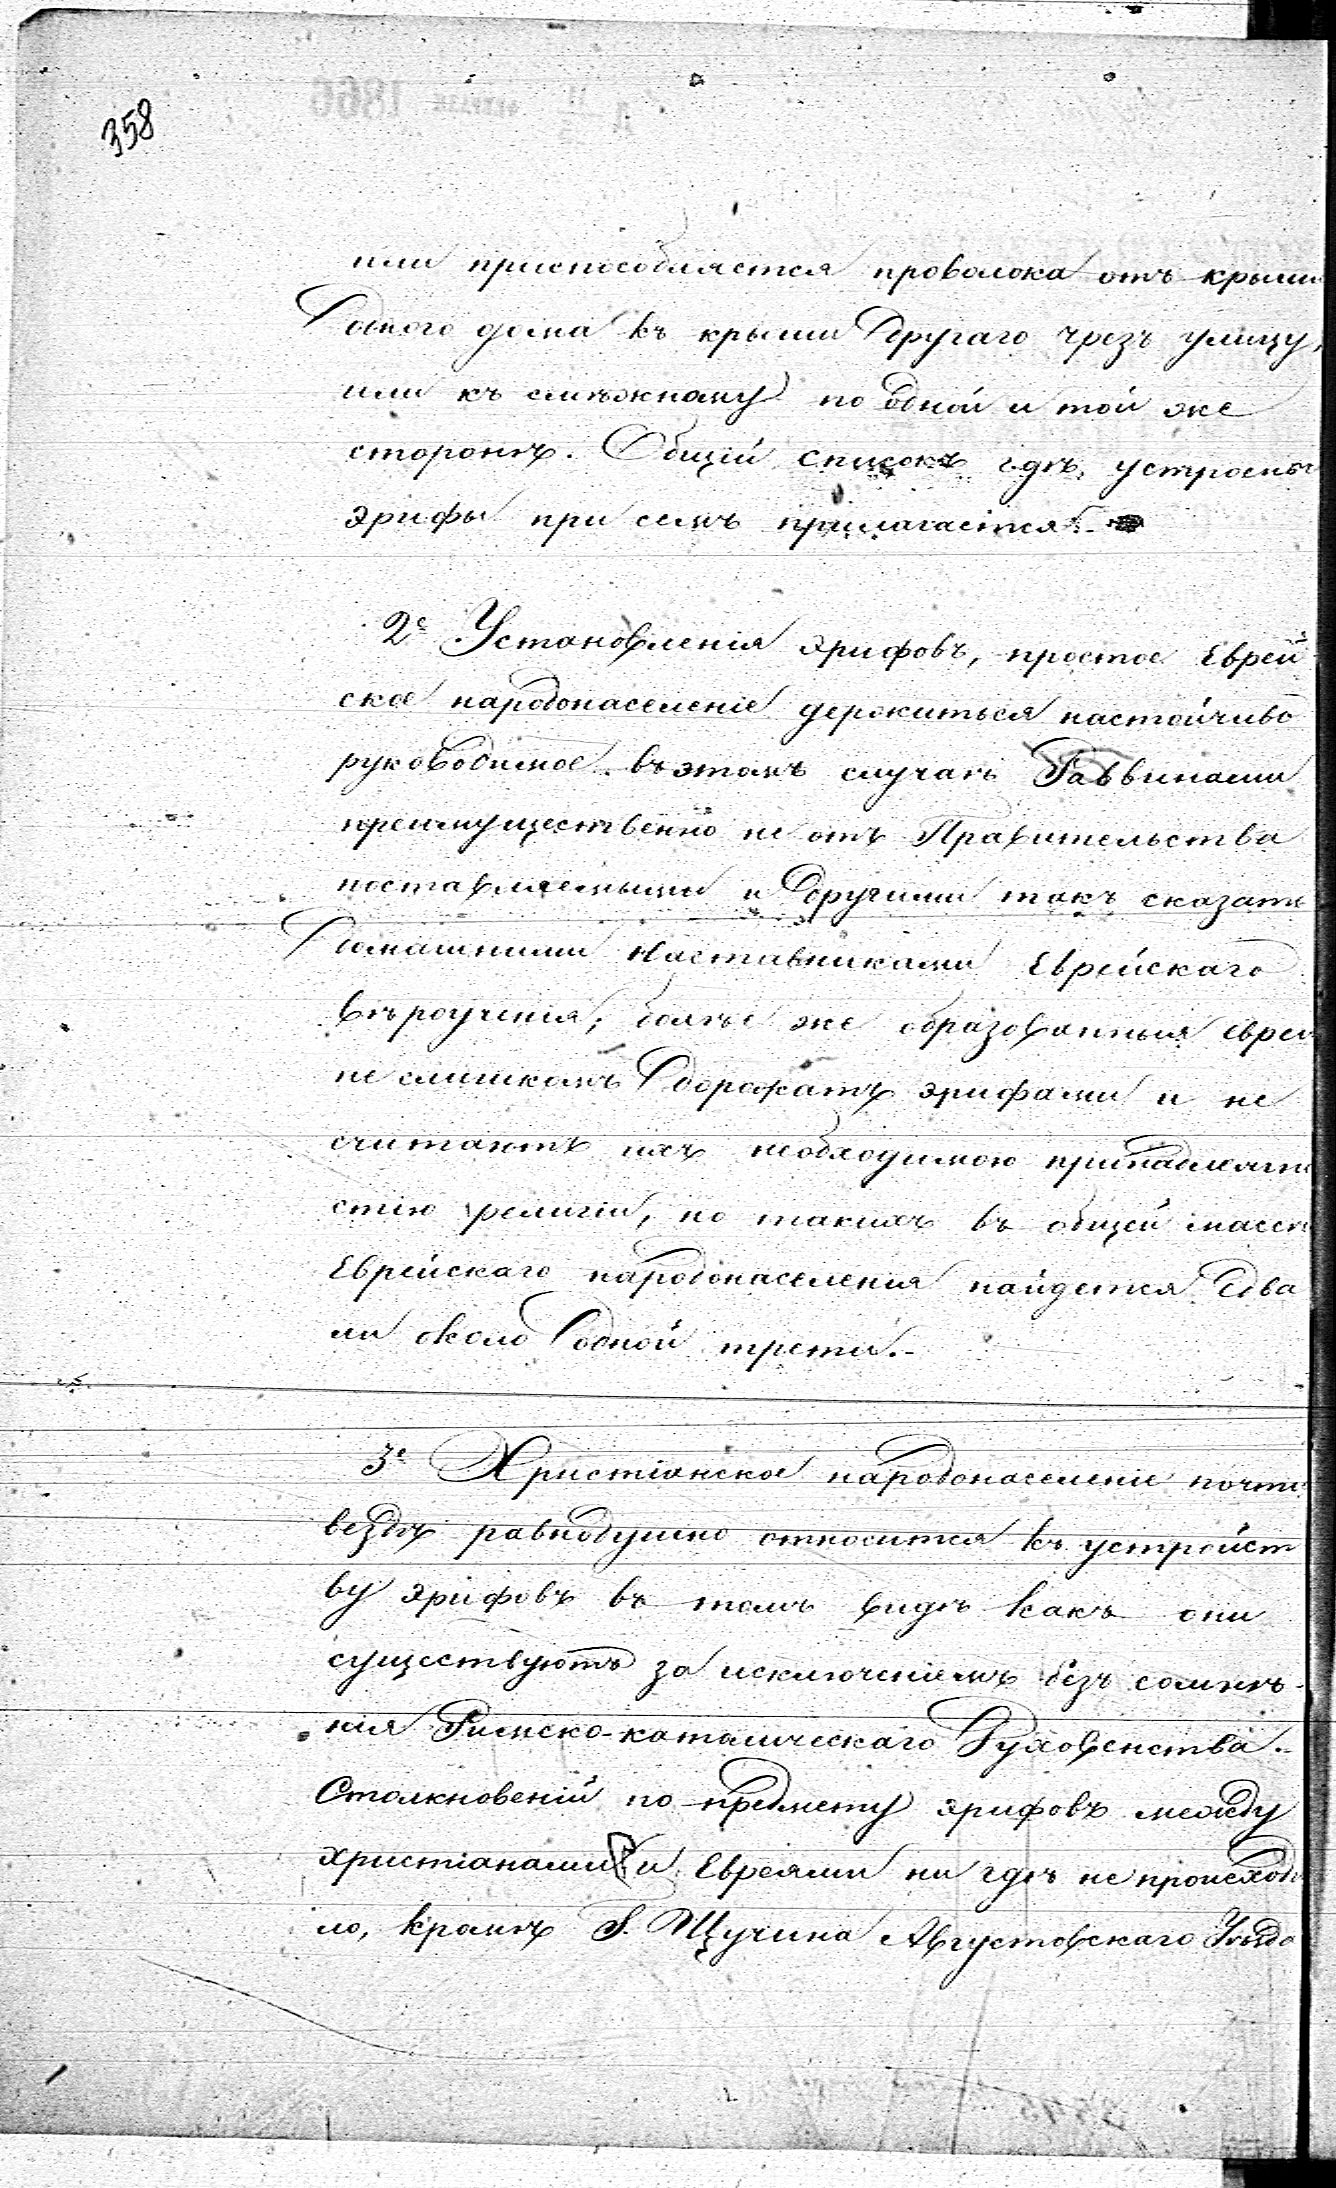 358
или приспособляется проволока отъ крыши
одного дома къ крыши другаго чрезъ улицу,
или къ смѣжному по одной и той же
сторонѣ. Общій списокъ гдѣ устроены
эрифы при семъ прилагается.
2е Установленія эрифовъ, простое Еврей
ское народонаселеніе держиться настойчиво
руководимое въ этомъ случаѣ Раввинами
преимущественно не отъ Правительства
поставляемыми и другими такъ сказать
домашними Наставниками Еврейскаго
вѣроученія; болѣе же образованныя евреи
не слишкомъ дорожатъ эрифами и не
считаютъ ихъ необходимою принадлежно
стію религіи, но такихъ въ общей массѣ
Еврейскаго народонаселенія найдется едва
ли около одной трети.-
3е Христіанское народонаселеніе почти
вездѣ равнодушно относится къ устройст
ву эрифовъ въ томъ видѣ какъ они
существуютъ за исключеніемъ безъ сомнѣ-
нія Римско-католическаго Духовенства.-
Столкновеній по предмету эрифовъ между
христіанами и Евреями ни гдѣ не происходи
ло, кромѣ Г. Щучина Августовскаго Уѣзда